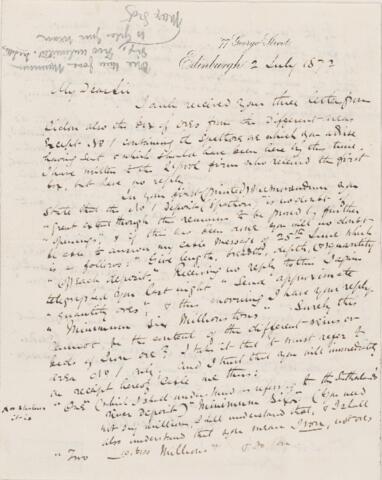 77 George Street
Edinburgh 2 July 1872
My Dear Sir
I duly received your three letters from
also the Box of Ores from the different areas
Except No 1 containing the which you advise
having sent & which should have been here by this time.
I have written to the L'pool firm who received the first
box, but have no reply.
In your first printed Memorandum you
state that the No 1 deposit, "is no doubt of
"great extent though the remains to be proved by further
"openings," & if this has been done you will no doubt
be able to answer my cable message of 25th June which
is as follows: "Give length, breadth, depth, & quantity
"of each deposit." Receiving no reply to this I again
telegraphed you last night "Send approximate
"quantity ores," & this morning I have your reply
"Minimum Six Millions tons" Surely this
cannot be the content of the different veins or
beds of Iron Ore? I take it that it must refer to
area No 1 only; and I trust that you will immediately
on receipt hereof Cable me thus:
"One (which I shall understand as refers to the Sutherlands
River deposit) "Minimum Six" (you need
not say million, I shall understand that, & I shall
also understand that you mean Iron, not ores
"Two Millions" & so on